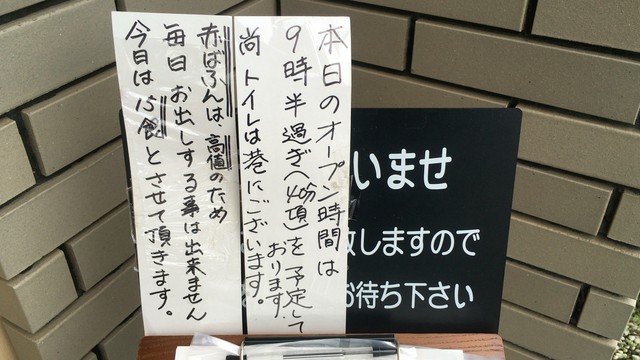 本日のオープン時間は
9時半過ぎ〜(40分頃)を予定して
おります。
尚トイレは巷にございます。
赤ばふんは、高値のため
毎日お出しする事は出来ません
今日は15食とさせて頂きます。
いませ
致しますので
お待ち下さい